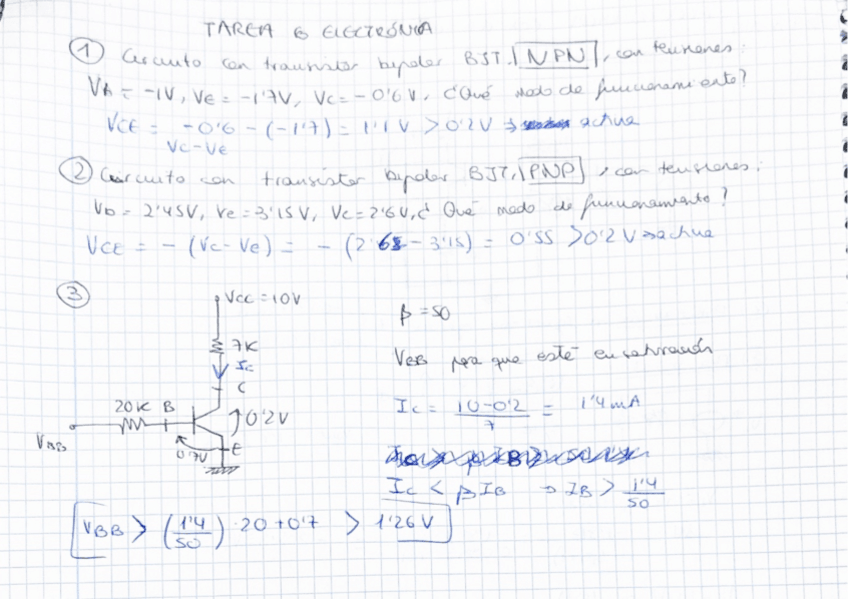 TAREA 6 ELECTRÓNICA
① Circuito con transistor bipolar BJT, NPN, con tensiones:
VB = -1V, VE = -1'7V, VC = -0'6V, ¿Qué modo de funcionamiento?
VCE = -0'6 - (-1'7) = 1'1V > 0'2V ⇒ activa
VC-VE
② Circuito con transistor bipolar BJT, PNP, con tensiones:
VB = 2'45V, VE = 3'15V, VC = 2'6V, ¿Qué modo de funcionamiento?
VCE = - (VC - VE) = - (2'6 - 3'15) = 0'55 > 0'2V ⇒ activa
③
VCC = 10V
7K
IC
C
20K B
0'2V
VBB
0'7V
E
β = 50
VBB para que esté en saturación
IC = 10-0'2 / 7 = 1'4mA
IC < βIB → IB > 1'4 / 50
VBB > (1'4 / 50) · 20 + 0'7 > 1'26V